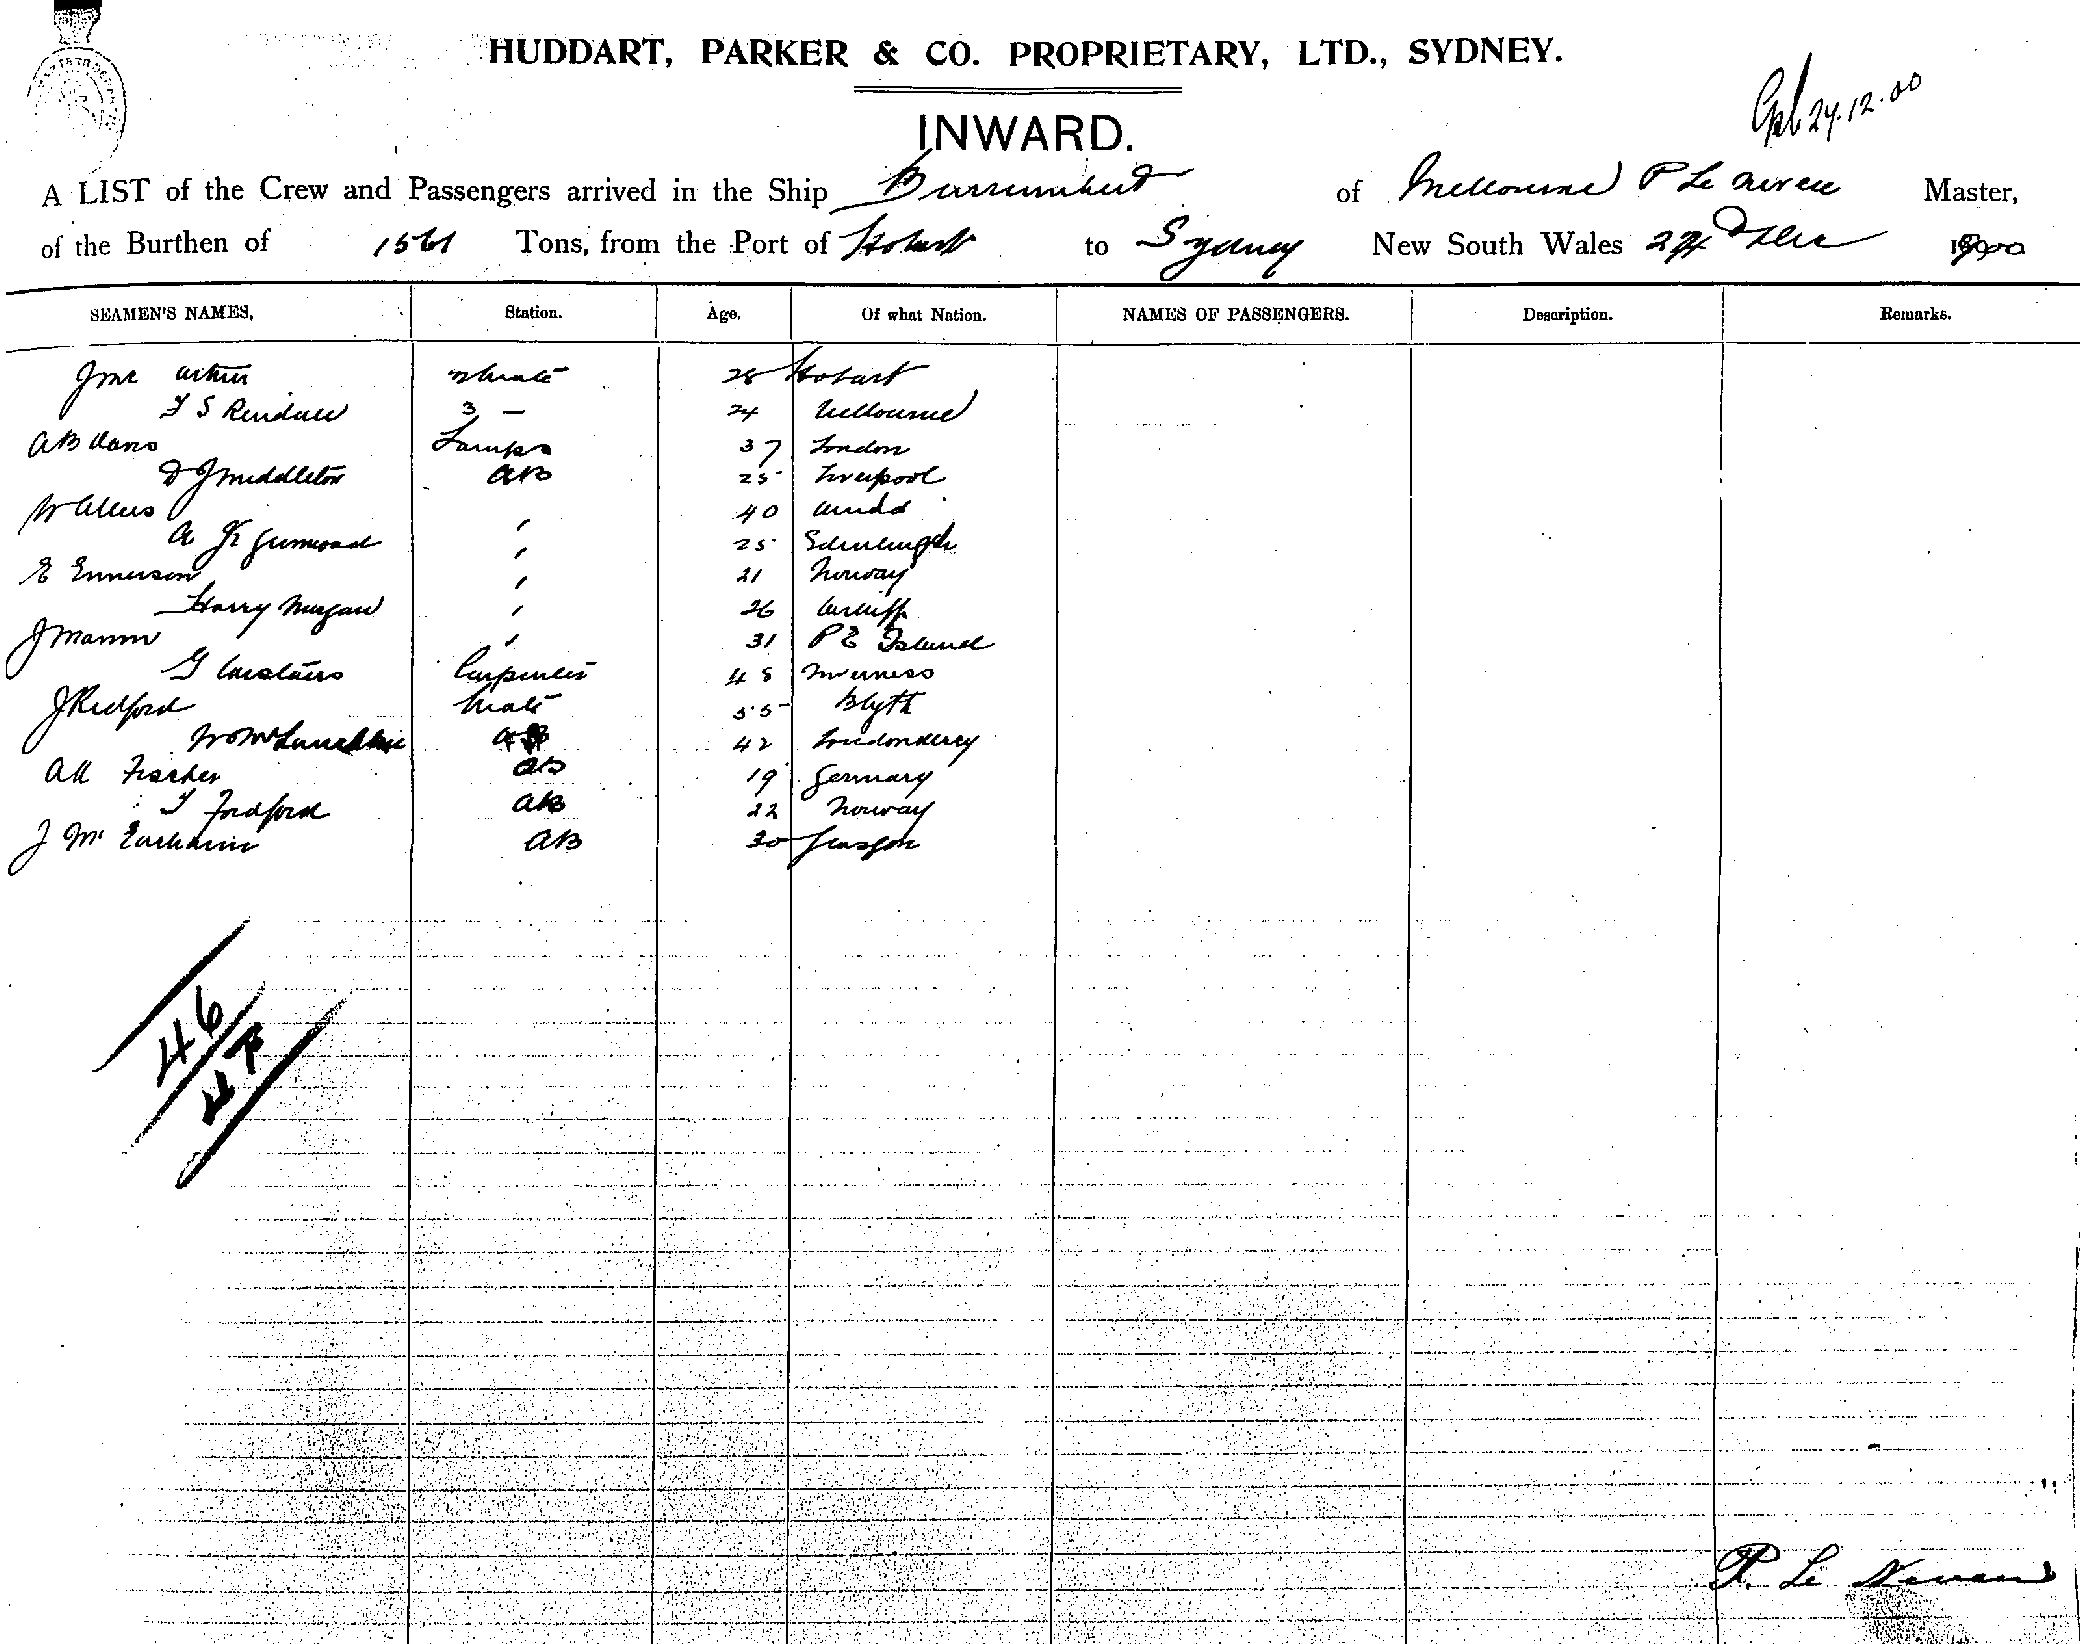 HUDDART, PARKER & CO. PROPRIETARY, LTD., SYDNEY.
24.12.00
INWARD.
A LIST of the Crew and Passengers arrived in the Ship Burrumbeet of Melbourne P Le Neveu Master,
of the Burthen of 1561 Tons, from the Port of Hobart to Sydney New South Wales 24 Dec 1900
SEAMEN'S NAMES, Station. Age. Of what Nation. NAMES OF PASSENGERS. Description. Remarks.
J Mc Arthur 2 Mate 28 Hobart
T S Rendall 3 — 24 Melbourne
A B Davis Lamps 37 London
D J Middleton AB 25 Liverpool
W Allens 40
A Grunwald 25 Edinburgh
E Ennerson 21 Norway
Harry Morgan 26 Cardiff
J Mann 31 P E Island
G Carstairs Carpenter 48 Inverness
J Redford Mate 55 Blyth
W Mc AB 42 Londonderry
Fischer AB 19 Germany
T Fordford AB 22 Norway
J Mc Eachainn AB 30 Glasgow
46
P. Le Neveu